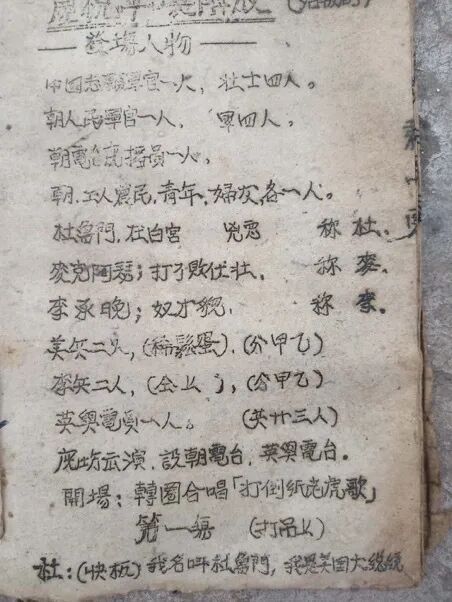 登場人物
中国志願軍官一人，壮士四人。
朝人民軍官一人，軍四人。
朝電台廣播員一人。
朝．工人農民，青年，婦女各一人。
杜魯門，在白宮 兇惡 称 杜．
麥克阿瑟；打了敗仗 称 麥．
李承晚；奴才貌 称 李．
美矣二人，(稀鬆蛋)．(分甲乙)
李矣二人，(分甲乙)
英奧電員一人。 (共廿三人)
廣坊云演．設朝電台，英奧電台．
開場：轉圈合唱「打倒纸老虎歌」
第一塲
杜：(快板) 我名叫杜魯門，我是美国大總統